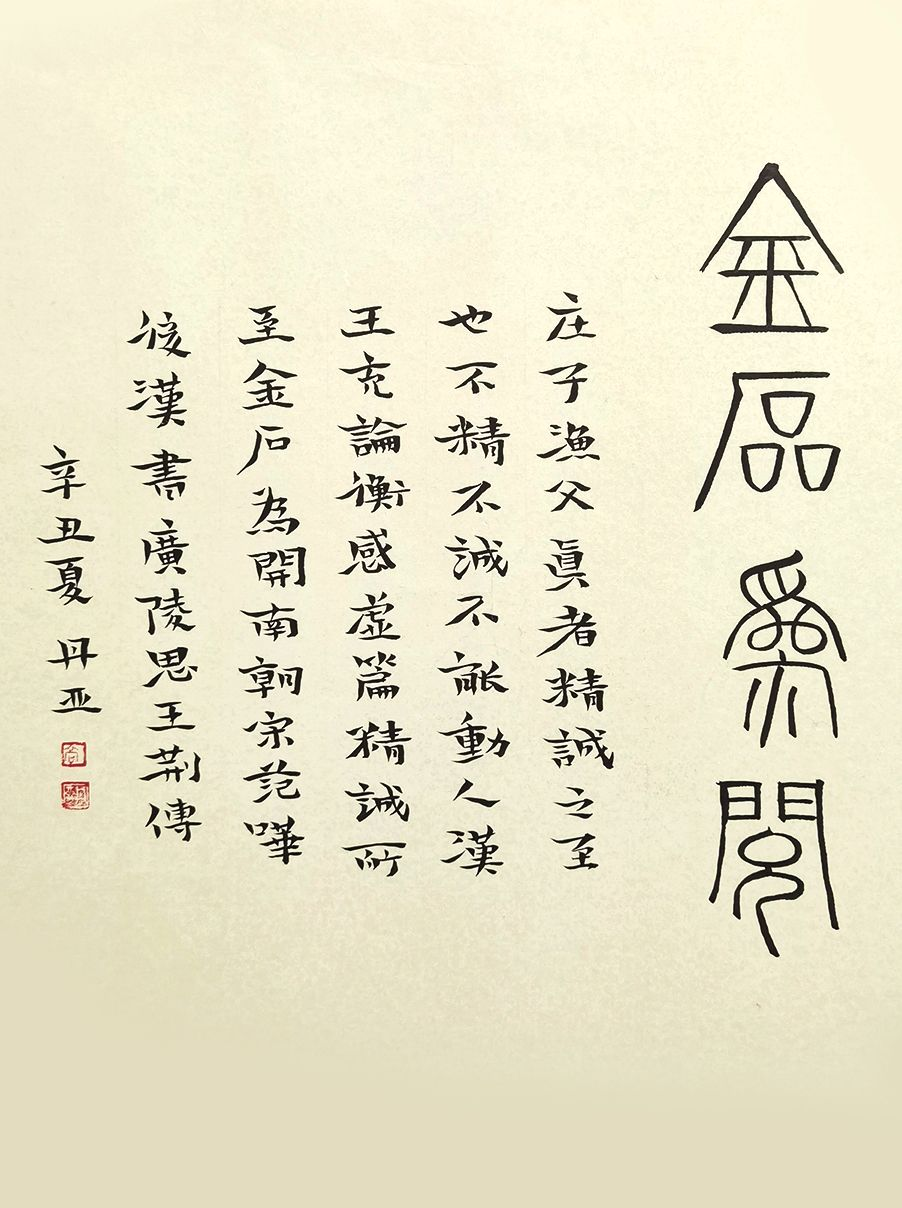 金石為開
庄子漁父真者精誠之至
也不精不誠不能動人漢
王充論衡感虛篇精誠所
至金石為開南朝宋范曄
後漢書廣陵思王荊傳
辛丑夏 丹亚